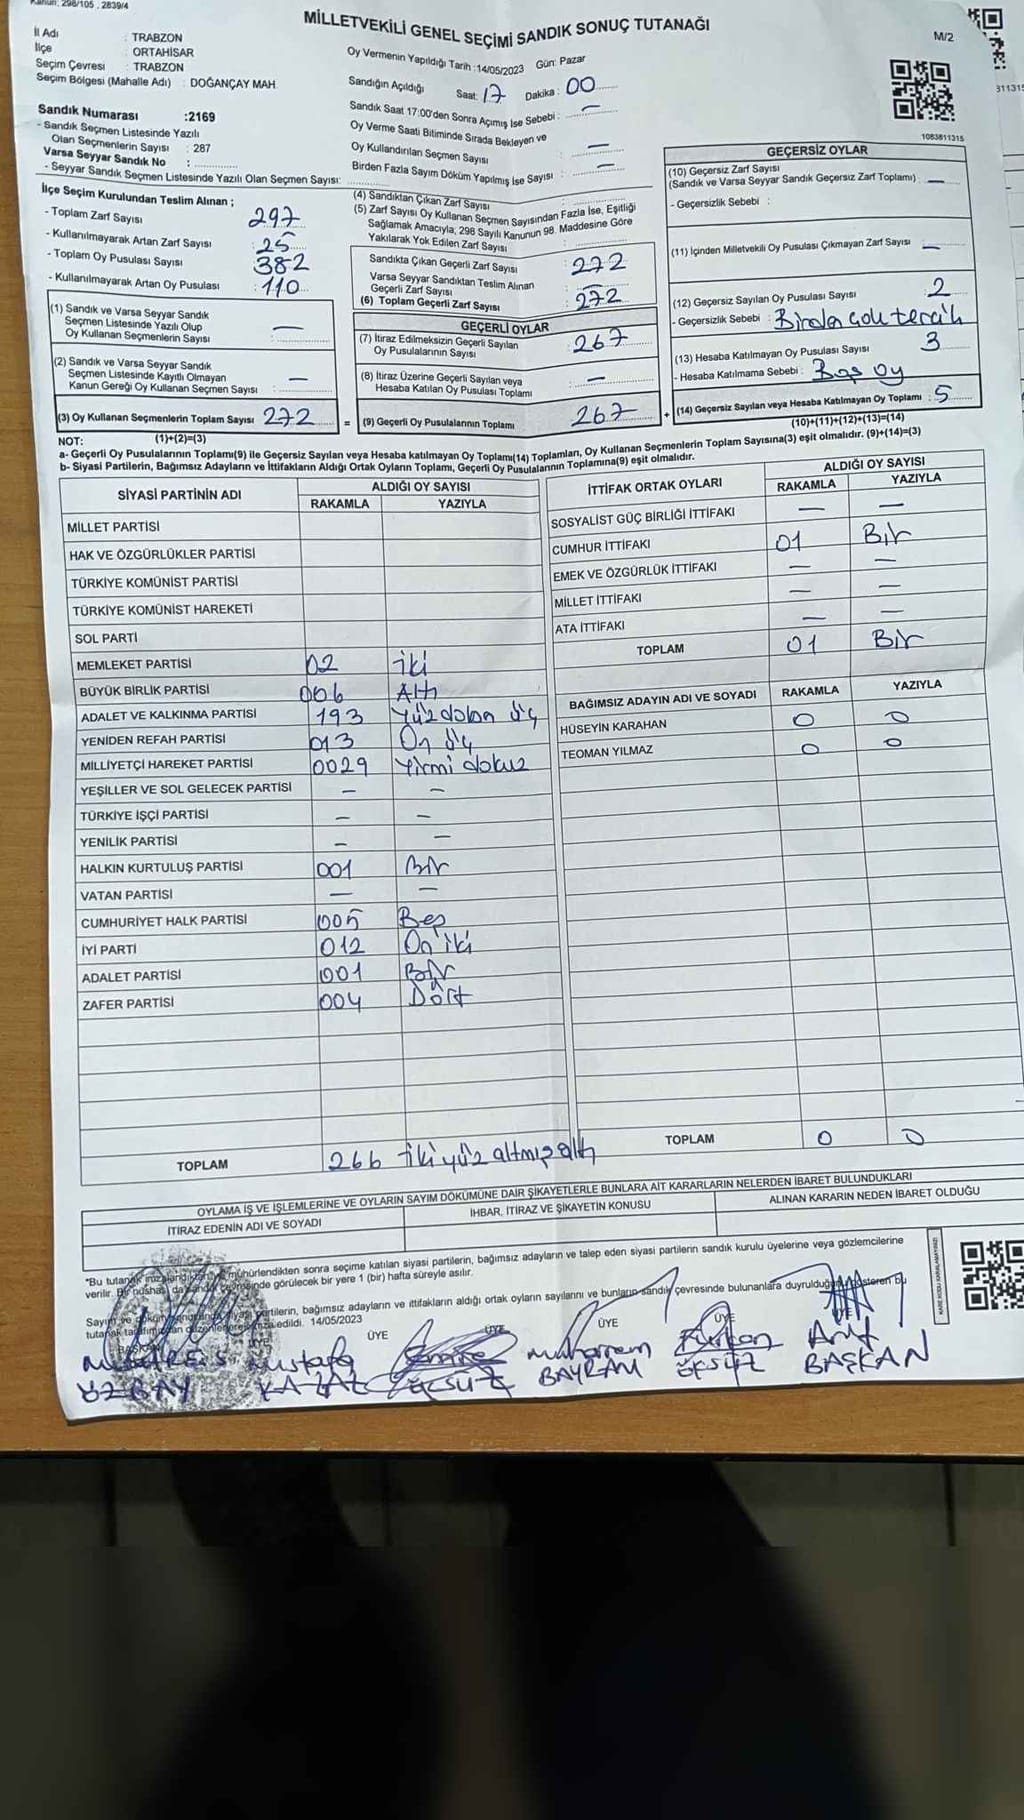 Kanun: 298/105 , 2839/4
MİLLETVEKİLİ GENEL SEÇİMİ SANDIK SONUÇ TUTANAĞI
M/2
İl Adı : TRABZON
İlçe ORTAHİSAR
Seçim Çevresi : TRABZON
Seçim Bölgesi (Mahalle Adı) : DOĞANÇAY MAH.
Oy Vermenin Yapıldığı Tarih :14/05/2023 Gün: Pazar
Sandığın Açıldığı Saat: 17 Dakika : 00
Sandık Saat 17:00'den Sonra Açılmış İse Sebebi : —
Oy Verme Saati Bitiminde Sırada Bekleyen ve
Oy Kullandırılan Seçmen Sayısı : —
Birden Fazla Sayım Döküm Yapılmış İse Sayısı : —
1083811315
Sandık Numarası :2169
- Sandık Seçmen Listesinde Yazılı
Olan Seçmenlerin Sayısı : 287
Varsa Seyyar Sandık No :
- Seyyar Sandık Seçmen Listesinde Yazılı Olan Seçmen Sayısı:
İlçe Seçim Kurulundan Teslim Alınan ;
- Toplam Zarf Sayısı : 297
- Kullanılmayarak Artan Zarf Sayısı : 25
- Toplam Oy Pusulası Sayısı : 382
- Kullanılmayarak Artan Oy Pusulası : 110
(1) Sandık ve Varsa Seyyar Sandık
Seçmen Listesinde Yazılı Olup
Oy Kullanan Seçmenlerin Sayısı : —
(2) Sandık ve Varsa Seyyar Sandık
Seçmen Listesinde Kayıtlı Olmayan
Kanun Gereği Oy Kullanan Seçmen Sayısı : —
(3) Oy Kullanan Seçmenlerin Toplam Sayısı : 272
(1)+(2)=(3)
(4) Sandıktan Çıkan Zarf Sayısı :
(5) Zarf Sayısı Oy Kullanan Seçmen Sayısından Fazla İse, Eşitliği
Sağlamak Amacıyla; 298 Sayılı Kanunun 98. Maddesine Göre
Yakılarak Yok Edilen Zarf Sayısı :
Sandıkta Çıkan Geçerli Zarf Sayısı : 272
Varsa Seyyar Sandıktan Teslim Alınan
Geçerli Zarf Sayısı : —
(6) Toplam Geçerli Zarf Sayısı : 272
GEÇERLİ OYLAR
(7) İtiraz Edilmeksizin Geçerli Sayılan
Oy Pusulalarının Sayısı : 267
(8) İtiraz Üzerine Geçerli Sayılan veya
Hesaba Katılan Oy Pusulası Toplamı : —
= (9) Geçerli Oy Pusulalarının Toplamı : 267 +
GEÇERSİZ OYLAR
(10) Geçersiz Zarf Sayısı
(Sandık ve Varsa Seyyar Sandık Geçersiz Zarf Toplamı) : —
- Geçersizlik Sebebi :
(11) İçinden Milletvekili Oy Pusulası Çıkmayan Zarf Sayısı : —
(12) Geçersiz Sayılan Oy Pusulası Sayısı : 2
- Geçersizlik Sebebi : Birden çok tercih
(13) Hesaba Katılmayan Oy Pusulası Sayısı : 3
- Hesaba Katılmama Sebebi : Boş oy
(14) Geçersiz Sayılan veya Hesaba Katılmayan Oy Toplamı : 5
(10)+(11)+(12)+(13)=(14)
NOT:
a- Geçerli Oy Pusulalarının Toplamı(9) ile Geçersiz Sayılan veya Hesaba katılmayan Oy Toplamı(14) Toplamları, Oy Kullanan Seçmenlerin Toplam Sayısına(3) eşit olmalıdır. (9)+(14)=(3)
b- Siyasi Partilerin, Bağımsız Adayların ve İttifakların Aldığı Ortak Oyların Toplamı, Geçerli Oy Pusulalarının Toplamına(9) eşit olmalıdır.
SİYASİ PARTİNİN ADI ALDIĞI OY SAYISI
RAKAMLA YAZIYLA
MİLLET PARTİSİ
HAK VE ÖZGÜRLÜKLER PARTİSİ
TÜRKİYE KOMÜNİST PARTİSİ
TÜRKİYE KOMÜNİST HAREKETİ
SOL PARTİ
MEMLEKET PARTİSİ 02 iki
BÜYÜK BİRLİK PARTİSİ 006 Altı
ADALET VE KALKINMA PARTİSİ 193 Yüz doksan üç
YENİDEN REFAH PARTİSİ 013 On üç
MİLLİYETÇİ HAREKET PARTİSİ 0029 Yirmi dokuz
YEŞİLLER VE SOL GELECEK PARTİSİ — —
TÜRKİYE İŞÇİ PARTİSİ — —
YENİLİK PARTİSİ — —
HALKIN KURTULUŞ PARTİSİ 001 Bir
VATAN PARTİSİ — —
CUMHURİYET HALK PARTİSİ 005 Beş
İYİ PARTİ 012 On iki
ADALET PARTİSİ 001 Bir
ZAFER PARTİSİ 004 Dört
TOPLAM 266 iki yüz altmış altı
İTTİFAK ORTAK OYLARI ALDIĞI OY SAYISI
RAKAMLA YAZIYLA
SOSYALİST GÜÇ BİRLİĞİ İTTİFAKI — —
CUMHUR İTTİFAKI 01 Bir
EMEK VE ÖZGÜRLÜK İTTİFAKI — —
MİLLET İTTİFAKI — —
ATA İTTİFAKI — —
TOPLAM 01 Bir
BAĞIMSIZ ADAYIN ADI VE SOYADI RAKAMLA YAZIYLA
HÜSEYİN KARAHAN 0 0
TEOMAN YILMAZ 0 0
TOPLAM 0 0
OYLAMA İŞ VE İŞLEMLERİNE VE OYLARIN SAYIM DÖKÜMÜNE DAİR ŞİKAYETLERLE BUNLARA AİT KARARLARIN NELERDEN İBARET BULUNDUKLARI
İTİRAZ EDENİN ADI VE SOYADI İHBAR, İTİRAZ VE ŞİKAYETİN KONUSU ALINAN KARARIN NEDEN İBARET OLDUĞU
*Bu tutanak mühürlendikten sonra seçime katılan siyasi partilerin, bağımsız adayların ve talep eden siyasi partilerin sandık kurulu üyelerine veya gözlemcilerine
verilir. görülecek bir yere 1 (bir) hafta süreyle asılır.
partilerin, bağımsız adayların ve ittifakların aldığı ortak oyların sayılarını ve bunların sandık çevresinde bulunanlara duyurulduğunu gösteren bu
tutanak edildi. 14/05/2023
BAŞKAN ÜYE ÜYE ÜYE ÜYE ÜYE ÜYE
Mustafa Emine Muharrem Furkan Arif
ÖZBAY KAZAZ ÖKSÜZ BAYRAM ÖKSÜZ BAŞKAN